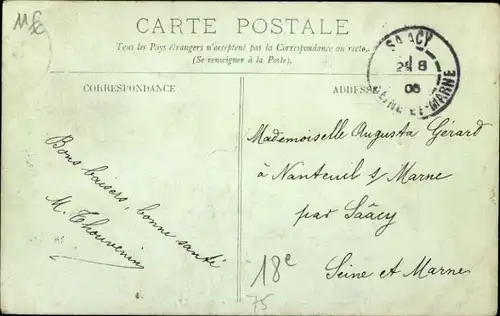 CARTE POSTALE
Tous les Pays étrangers n'acceptent pas la Correspondance au recto.
(Se renseigner à la Poste).
CORRESPONDANCE
ADRESSE
SAACY
8
SEINE-ET-MARNE
Bons baisers, bonne santé
M. Thouvenin
Mademoiselle Augusta Gérard
à Nanteuil s/ Marne
par Saâcy
Seine et Marne
18e
75